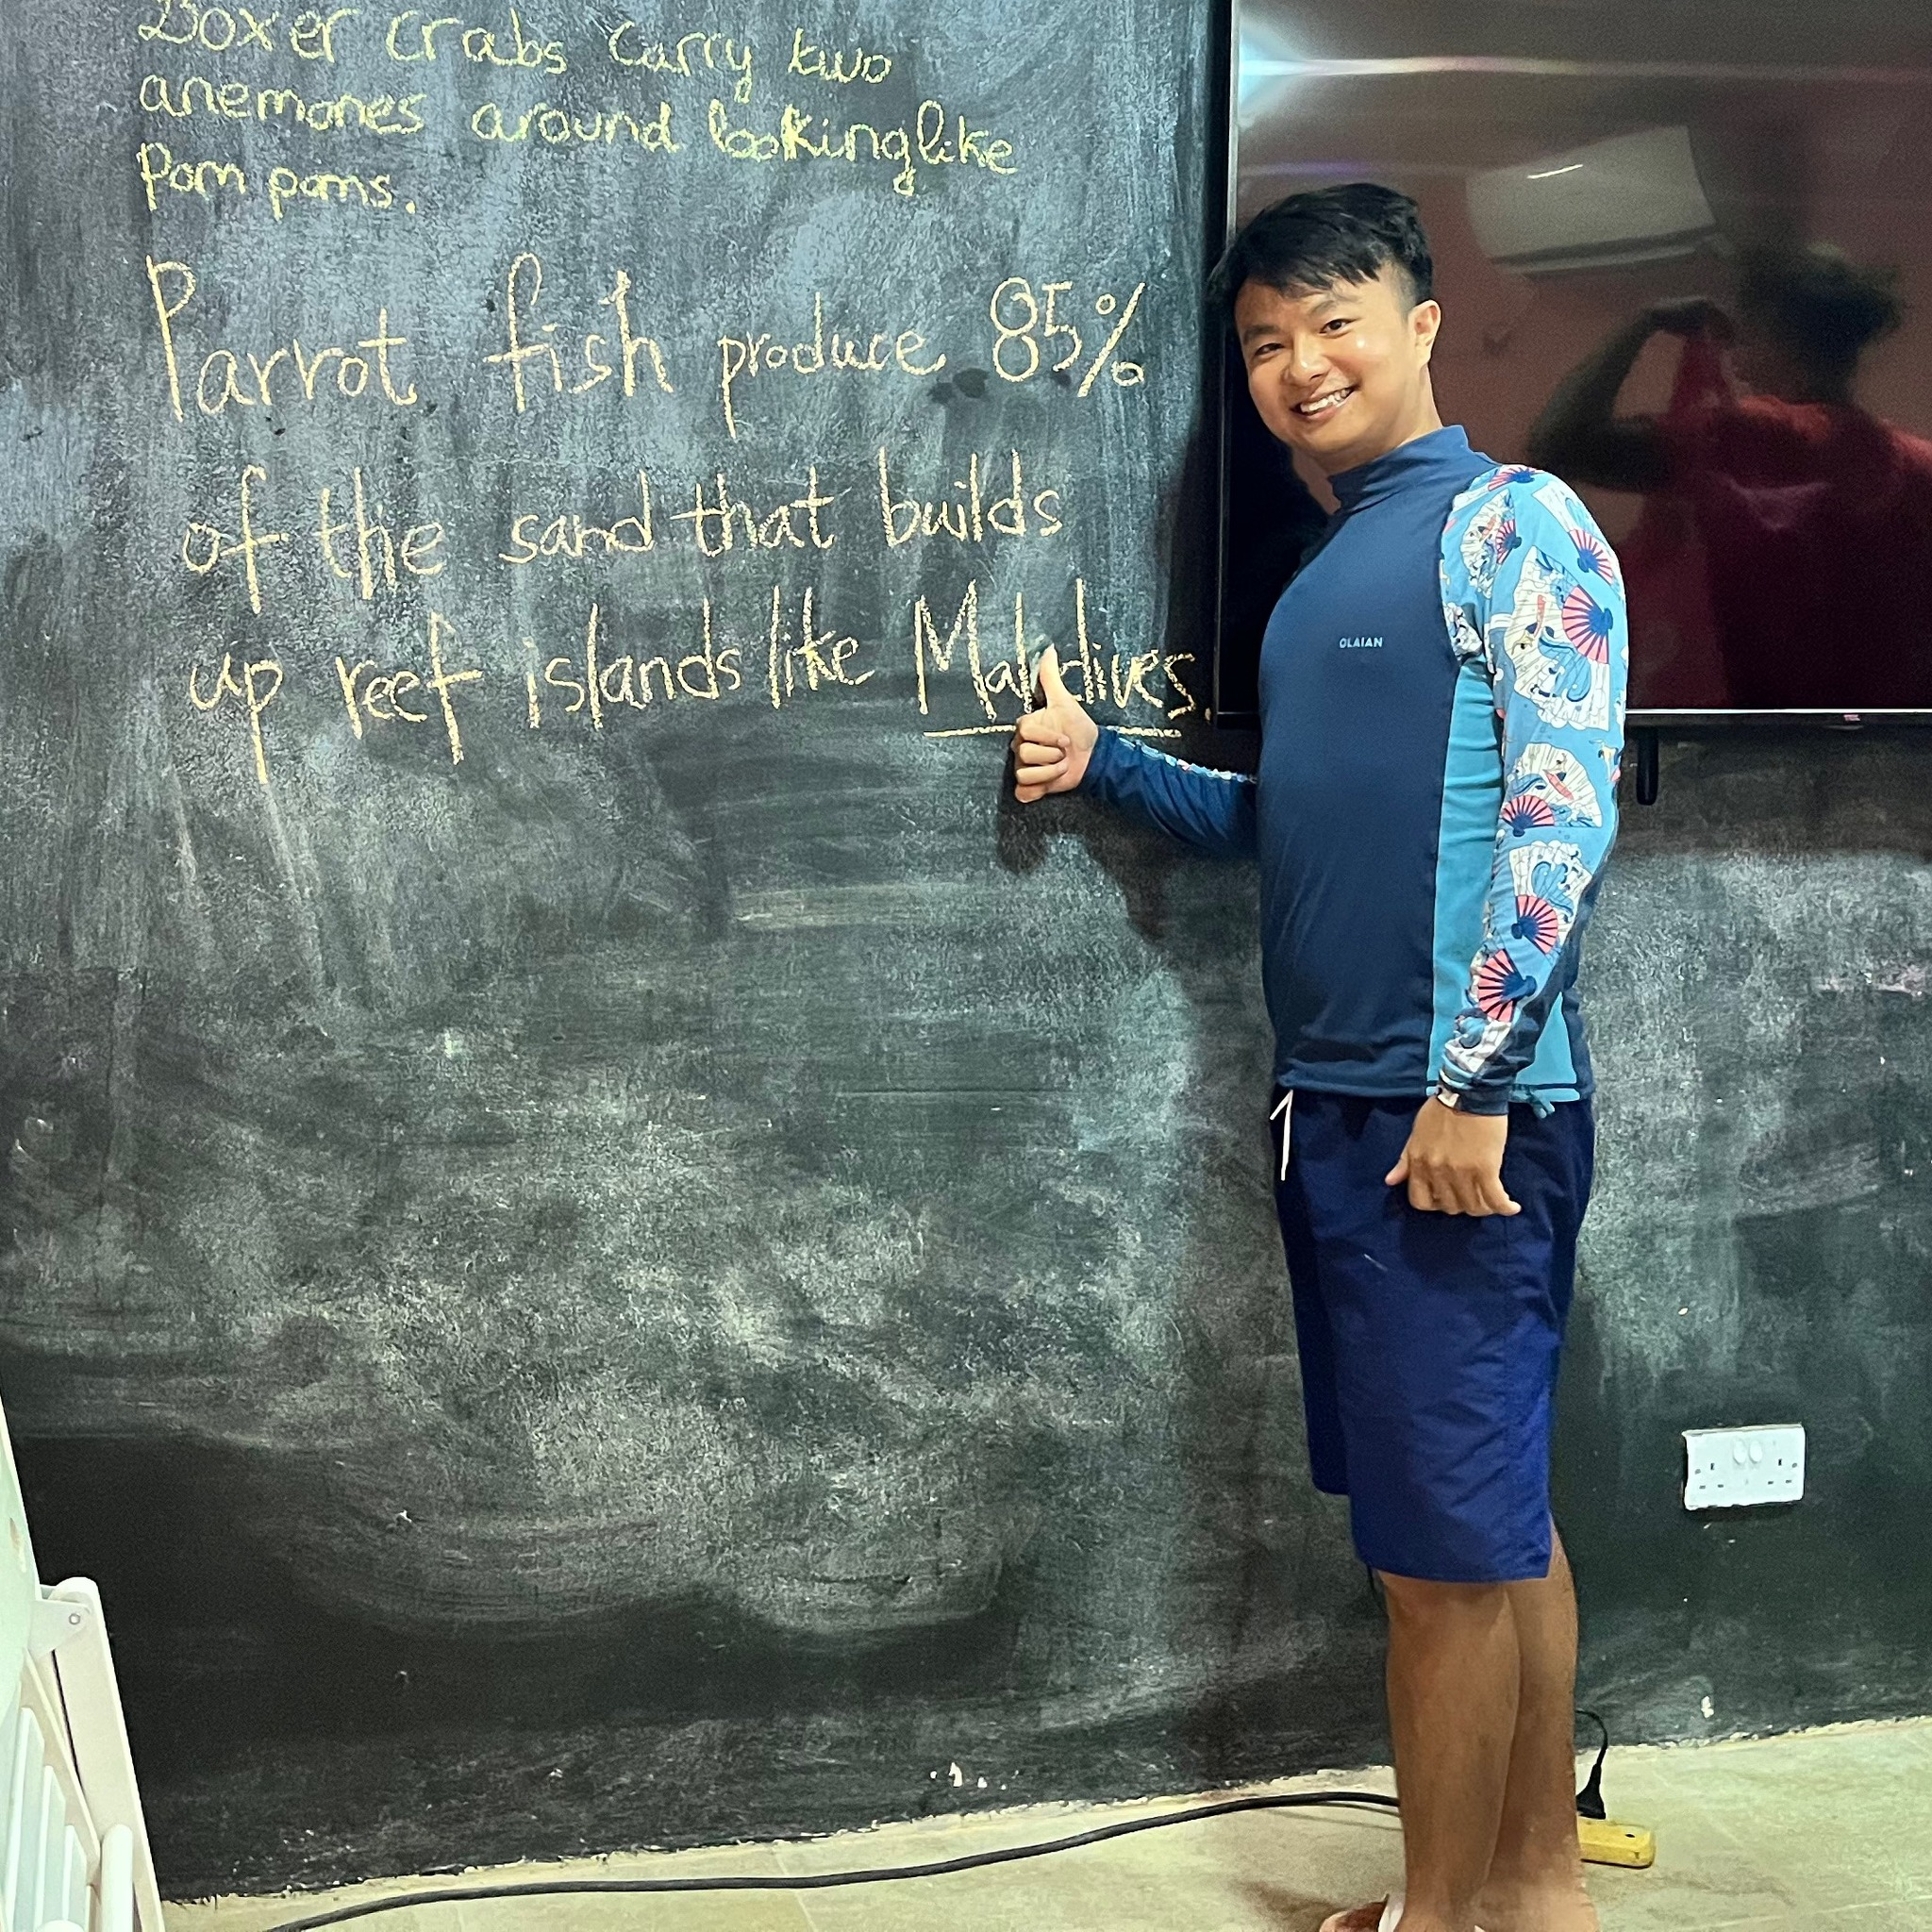 Boxer crabs carry two
anemones around looking like
Pom poms.
Parrot fish produce 85%
of the sand that builds
up reef islands like Maldives.
OLAIAN